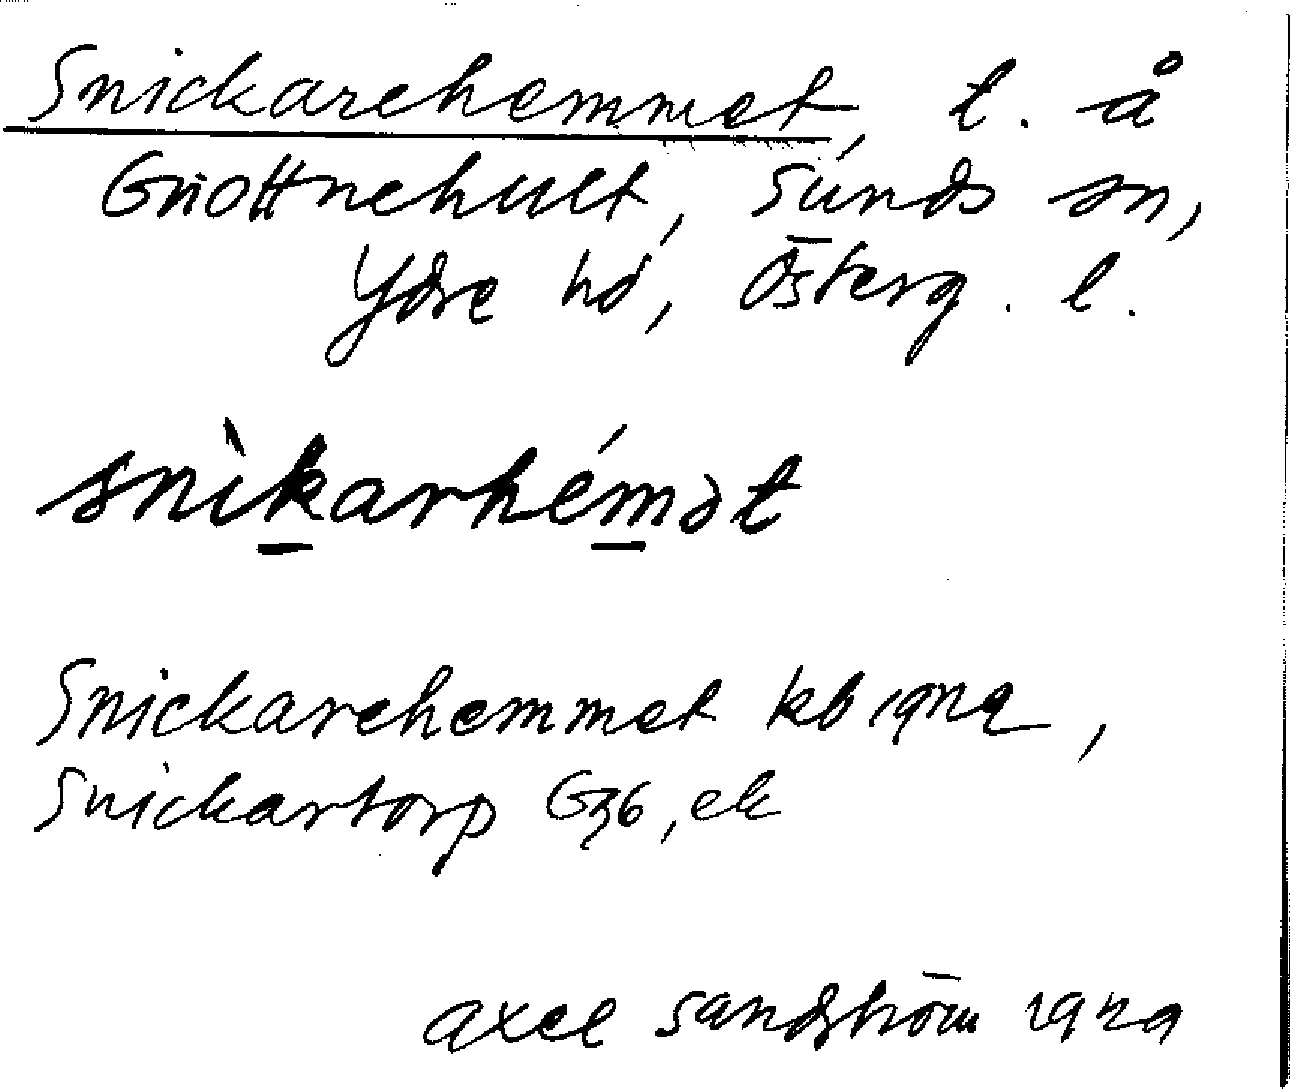 Snickarehemmet, t. å
Gnottnehult, Sunds sn,
Ydre hd, Österg. l.
snìkarhémət
Snickarehemmet kb 1929,
Snickartorp G36, ek
Axel Sandström 1929